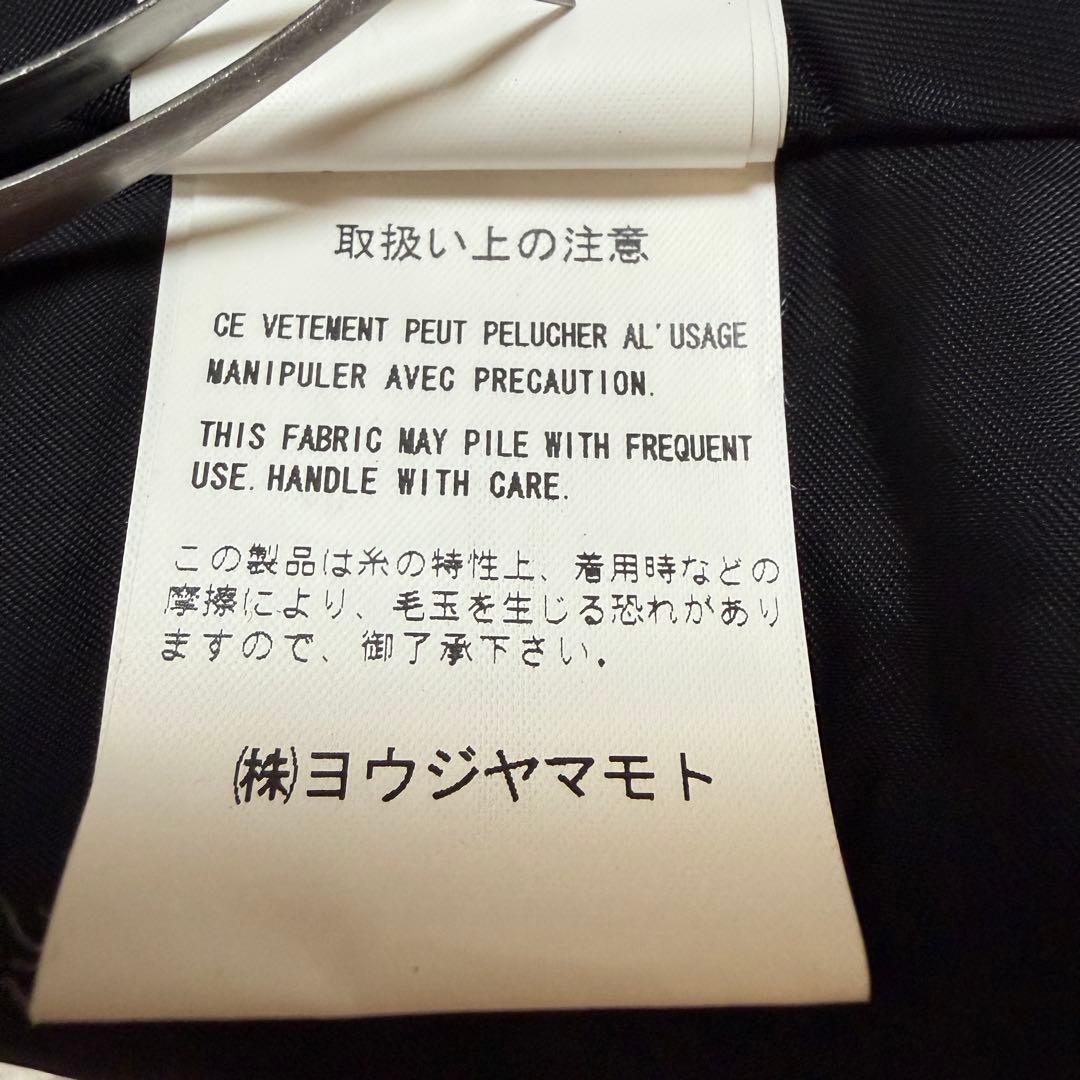 取扱い上の注意
CE VETEMENT PEUT PELUCHER AL'USAGE
MANIPULER AVEC PRECAUTION.
THIS FABRIC MAY PILE WITH FREQUENT
USE. HANDLE WITH CARE.
この製品は糸の特性上、着用時などの
摩擦により、毛玉を生じる恐れがあり
ますので、御了承下さい.
(株)ヨウジヤマモト